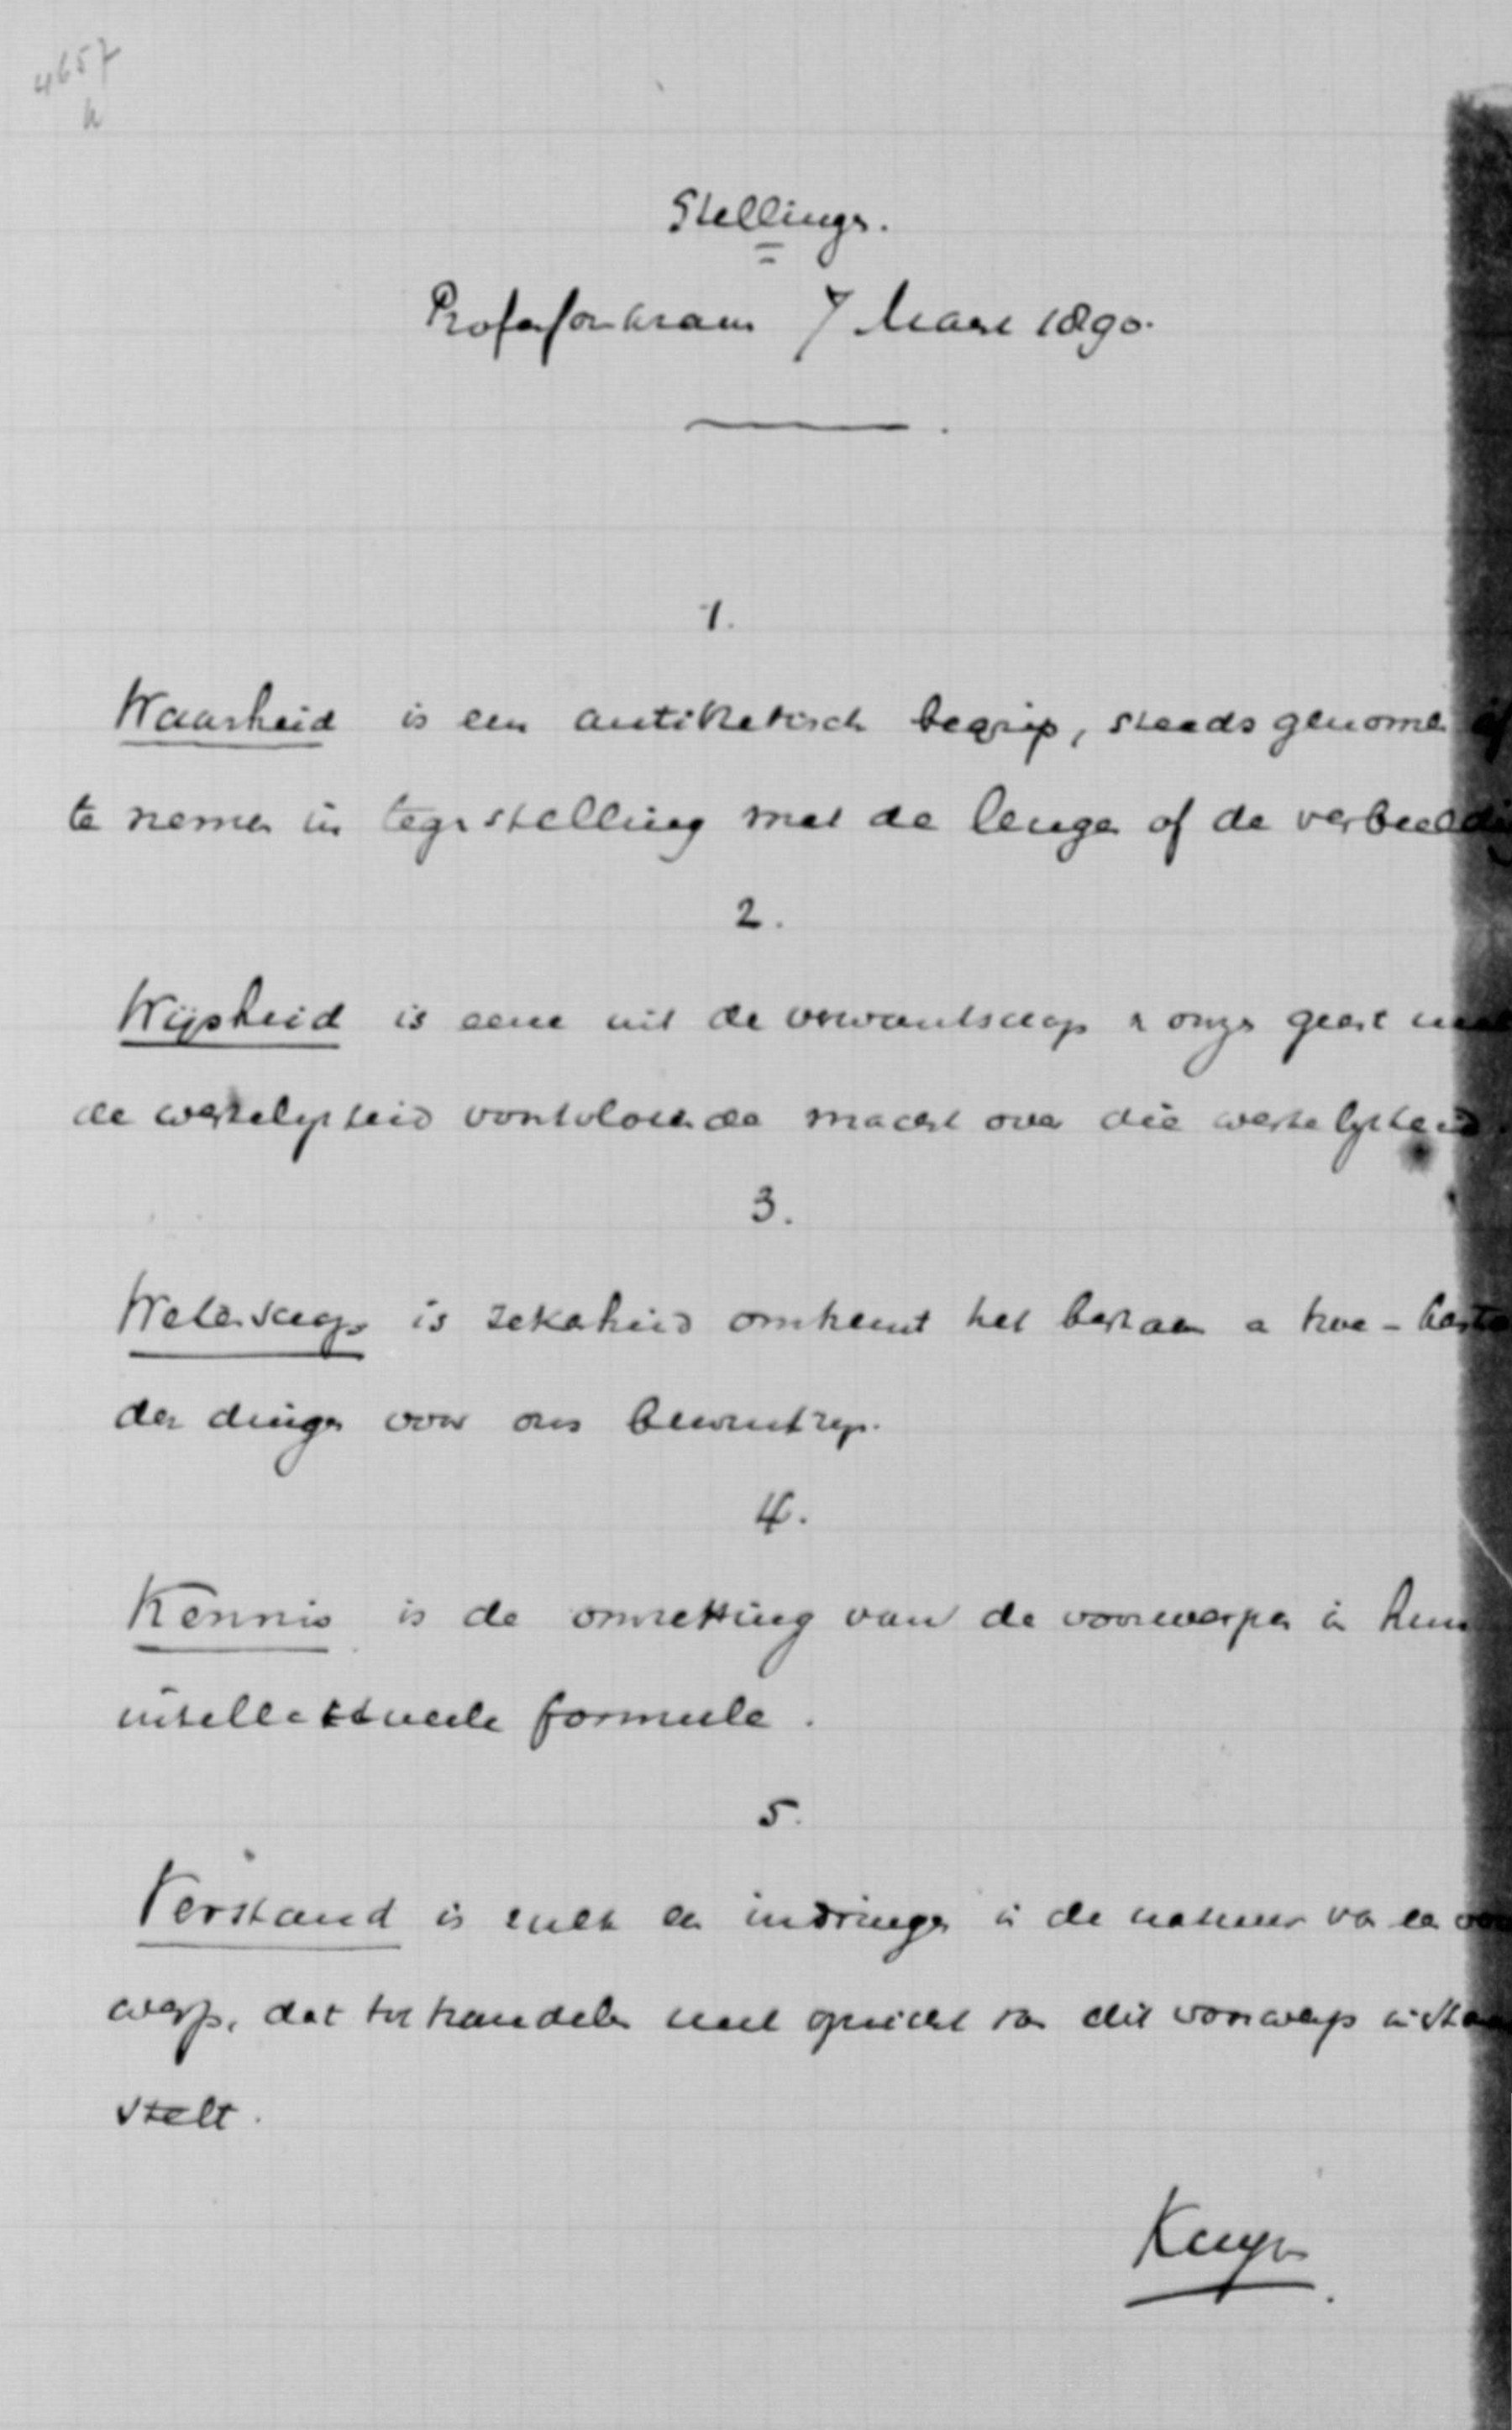 4657
Stellingen.
Professorenkrans 7 Maart 1890.
1.
Waarheid is een antithetisch begrip, steeds genomen of
te nemen in tegenstelling met de leugen of de verbeelding
2.
Wijsheid is eene uit de verwantschap van onzen geest met
de werkelijkheid voortvloeiende macht over die werkelijkheid.
3.
Wetenschap is zekerheid omtrent het bestaan en hoe-bestaan
der dingen voor ons bewustzijn.
4.
Kennis is de omzetting van de voorwerpen in hun
intellectueele formule.
5.
Verstand is zulk een indringen in de natuur van een voor
werp, dat tot handelen met opzicht van dit voorwerp in staat
stelt.
Kuyper